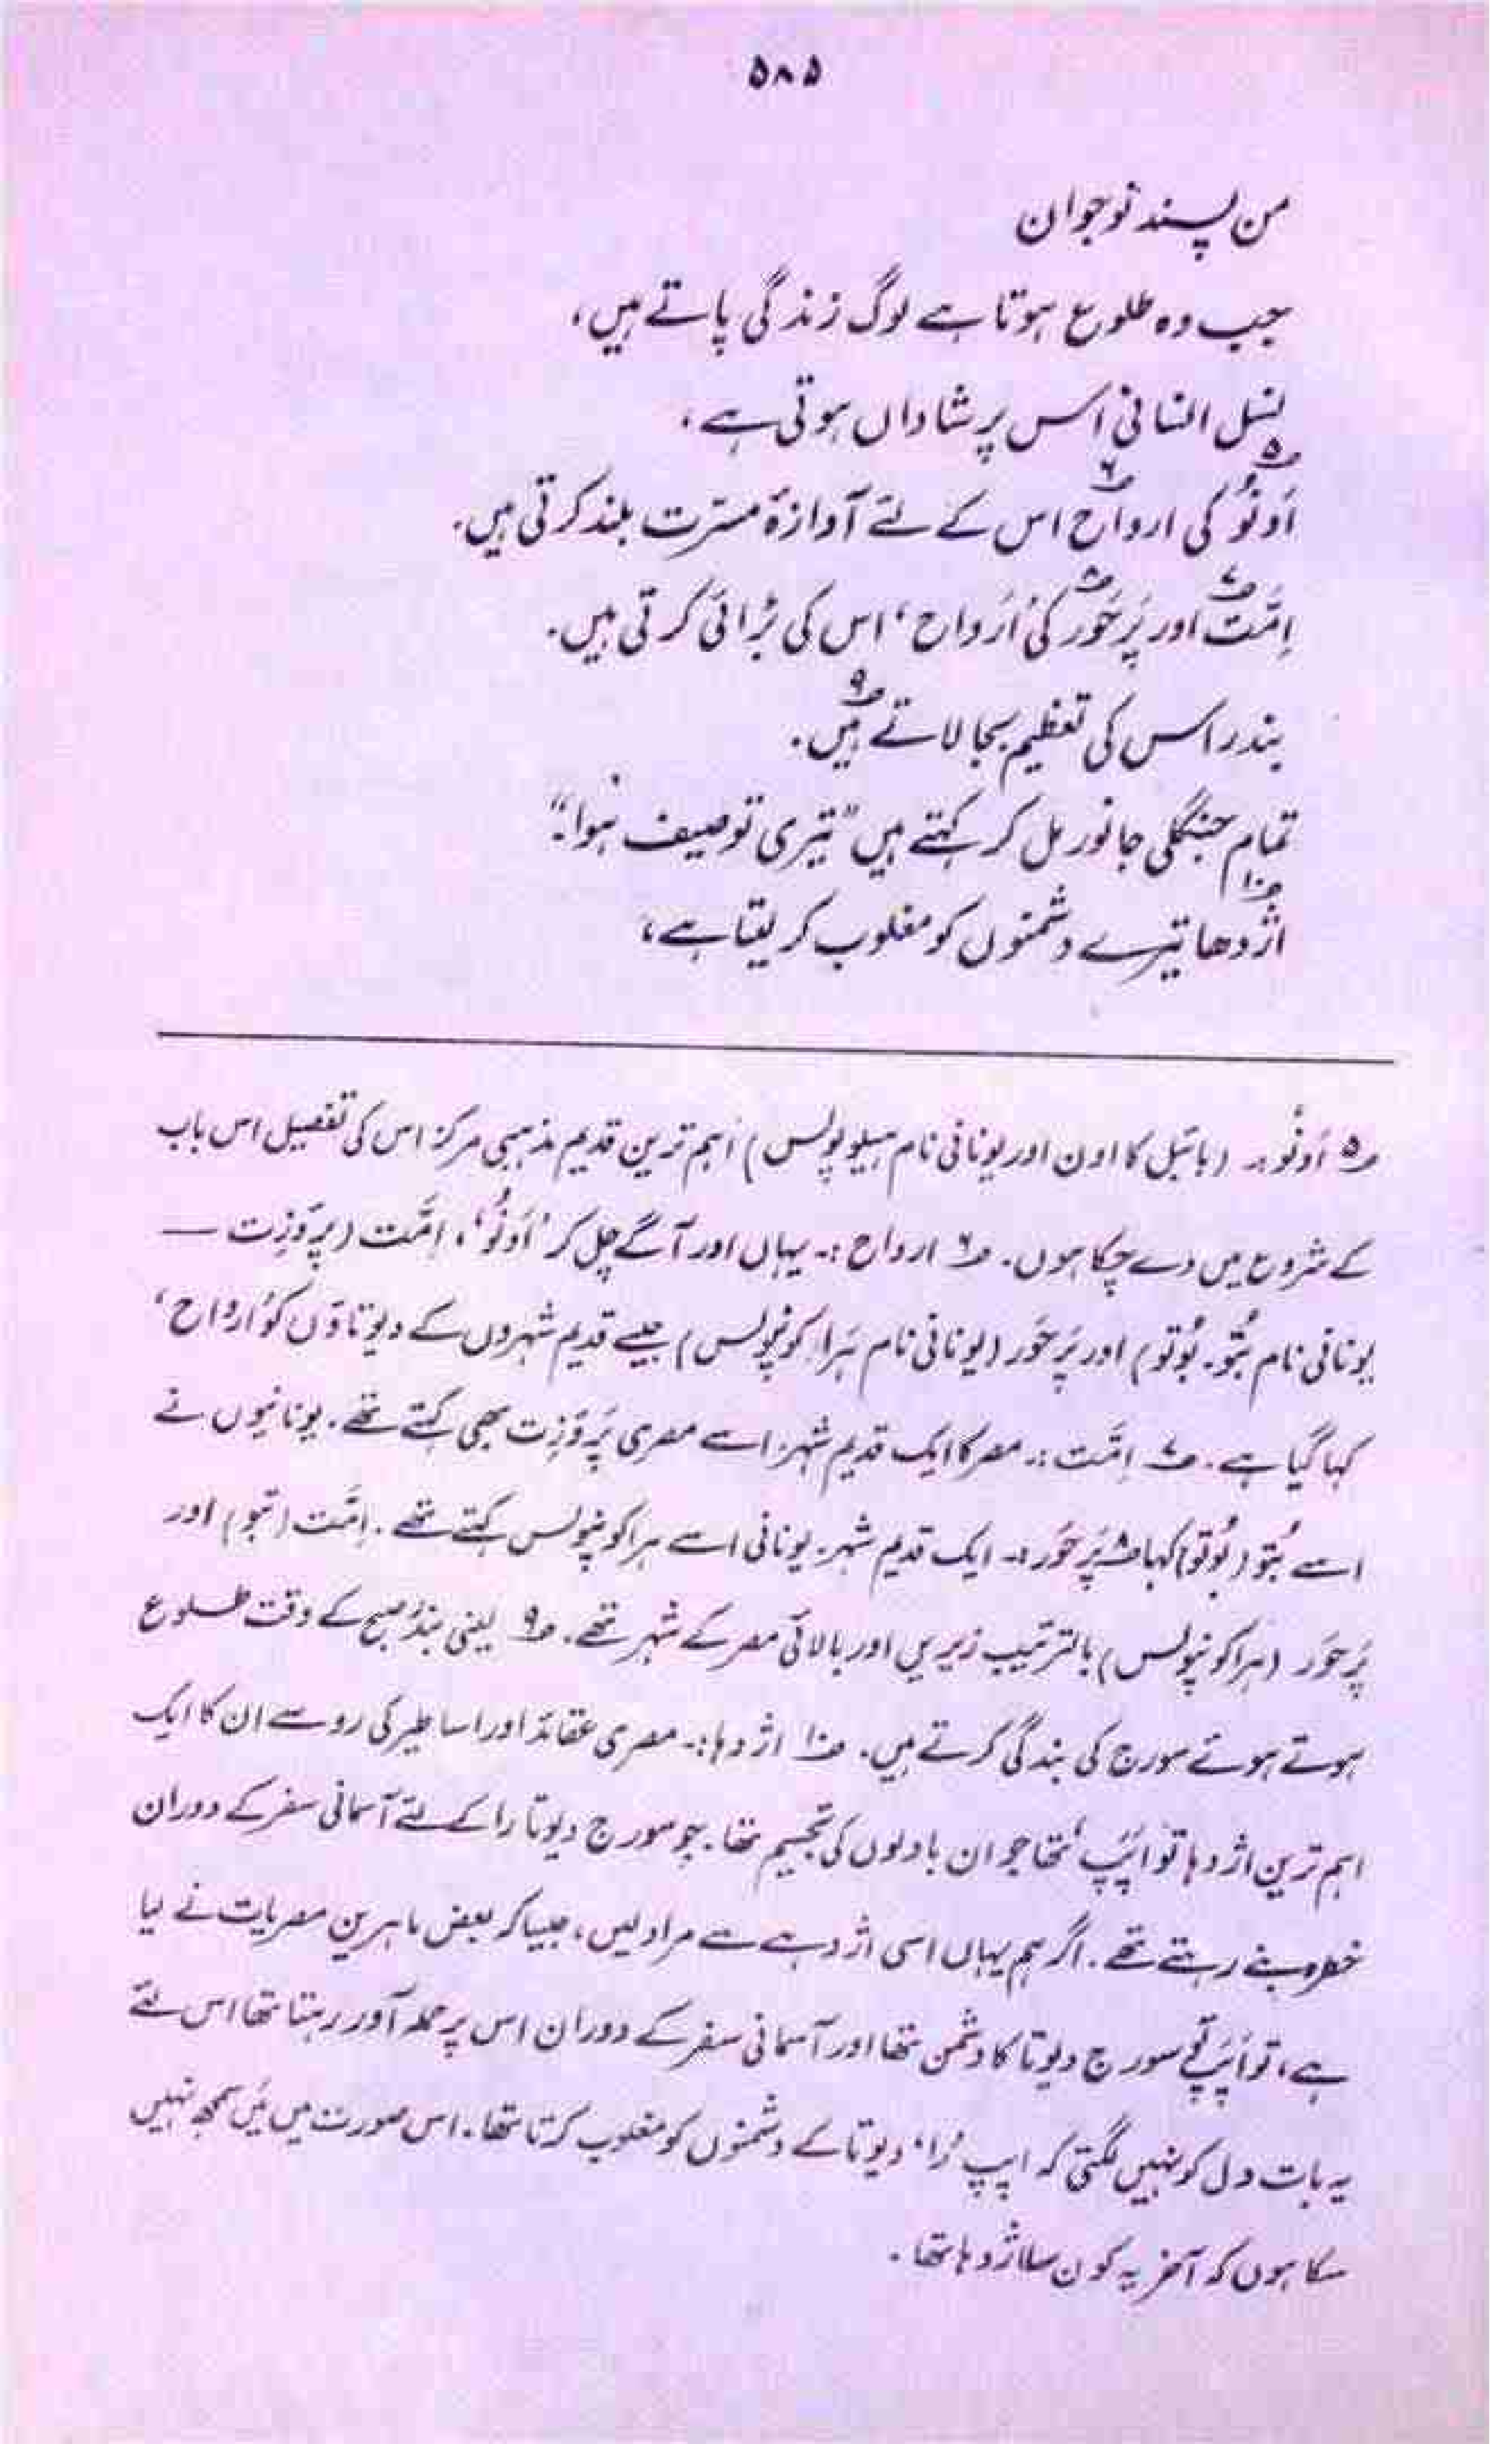 ۵۸۵
من پسند نوجوان
جب وہ طلوع ہوتا ہے لوگ زندگی پاتے ہیں،
نسل انسانی اس پر شاداں ہوتی ہے،
اَونُو۵ کی ارواح۶ اس کے لئے آوازۂ مسرّت بلند کرتی ہیں.
اِمَّت۷ اور پَرحَور۸ کی 'اَرواح' اس کی بڑائی کرتی ہیں.
بندر اس کی تعظیم بجا لاتے ہیں۹.
تمام جنگلی جانور مل کر کہتے ہیں "تیری توصیف ہو!"
اژدھا۱۰ تیرے دشمنوں کو مغلوب کر لیتا ہے،
۵ اَونُو :۔ (بائبل کا اون اور یونانی نام ہیلیوپولس) اہم ترین قدیم مذہبی مرکز اس کی تفصیل اس باب
کے شروع میں دے چکا ہوں. ۶ ارواح :۔ یہاں اور آگے چل کر 'اَونُو'، اِمَّت (پروَزِت —
یونانی نام بُتو۔ بُوتو) اور پَرحَور (یونانی نام ہَراکونپولس) جیسے قدیم شہروں کے دیوتاؤں کو 'ارواح'
کہا گیا ہے. ۷ اِمَّت :۔ مصر کا ایک قدیم شہر. اسے مصری پَروَزِت بھی کہتے تھے. یونانیوں نے
اسے بُتو (بُوتو) کہا ۸ پَرحَور :۔ ایک قدیم شہر. یونانی اسے ہراکونپولس کہتے تھے. اِمَّت (بتو) اور
پَرحَور (ہراکونپولس) بالترتیب زیریں اور بالائی مصر کے شہر تھے. ۹ یعنی بندر صبح کے وقت طلوع
ہوتے ہوتے سورج کی بندگی کرتے ہیں. ۱۰ اژدہا :۔ مصری عقائد اور اساطیر کی رو سے ان کا ایک
اہم ترین اژدہا تو 'اَپَیپ' تھا جو ان بادلوں کی تجسیم تھا. جو سورج دیوتا را کے لئے آسمانی سفر کے دوران
خطرہ بنے رہتے تھے. اگر ہم یہاں اسی اژدہے سے مراد لیں، جیسا کہ بعض ماہرین مصریات نے لیا
ہے، تو اَپَیپ تو سورج دیوتا کا دشمن تھا اور آسمانی سفر کے دوران اس پر حملہ آور رہتا تھا اس لئے
یہ بات دل کو نہیں لگتی کہ اپیپ 'را' دیوتا کے دشمنوں کو مغلوب کرتا تھا. اس صورت میں مَیں سمجھ نہیں
سکا ہوں کہ آخر یہ کون سا اژدہا تھا.